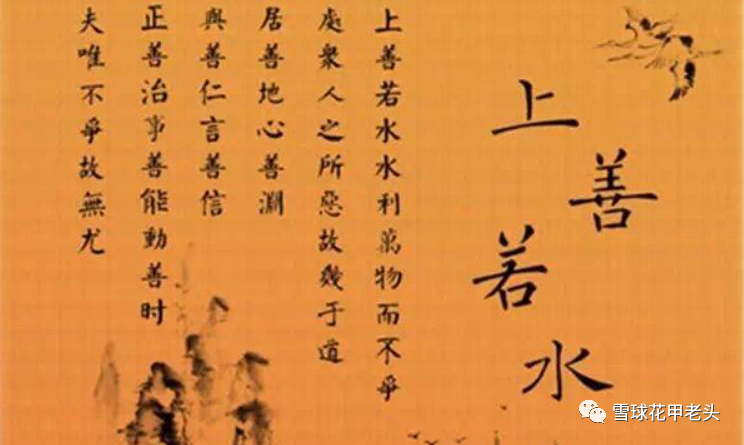 上善若水
上善若水水利萬物而不爭
處衆人之所惡故幾于道
居善地心善淵
與善仁言善信
正善治事善能動善时
夫唯不爭故無尤
雪球花甲老头